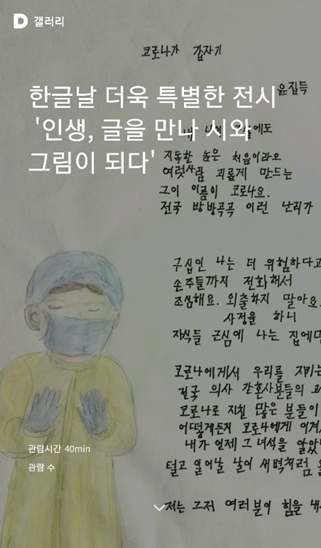 갤러리
코로나가 갑자기
윤집득
한글날 더욱 특별한 전시
'인생, 글을 만나 시와
그림이 되다'
에도
지독한 놈은 처음이라오
여럿사람 괴롭게 만드는
그이 이름이 코로나요.
전국 방방곡곡 이런 난리가
구십인 나는 더 위험하다고
손주들까지 전화해서
조심해요. 외출하지 말아요
사정을 하니
자식들 근심에 나는 집에만
코로나에게서 우리를 지키는
전국 의사 간호사분들의
코로나로 지칠 많은 분들이
어떻게든지 코로나에게 이겨
내가 언제 그 녀석을 알았
털고 일어날 날이 새벽처럼
관람시간 40min
관람 수
저는 그저 여러분이 힘을 내